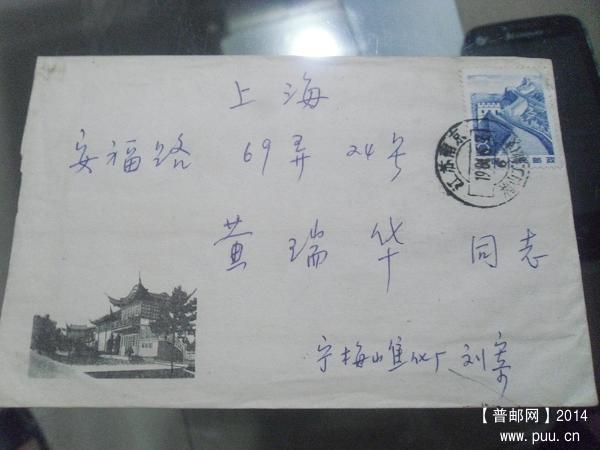 上海
安福路 69弄 24号
黄瑞华 同志
宁梅山焦化厂 刘寄
江苏南京
【普邮网】2014
www.puu.cn